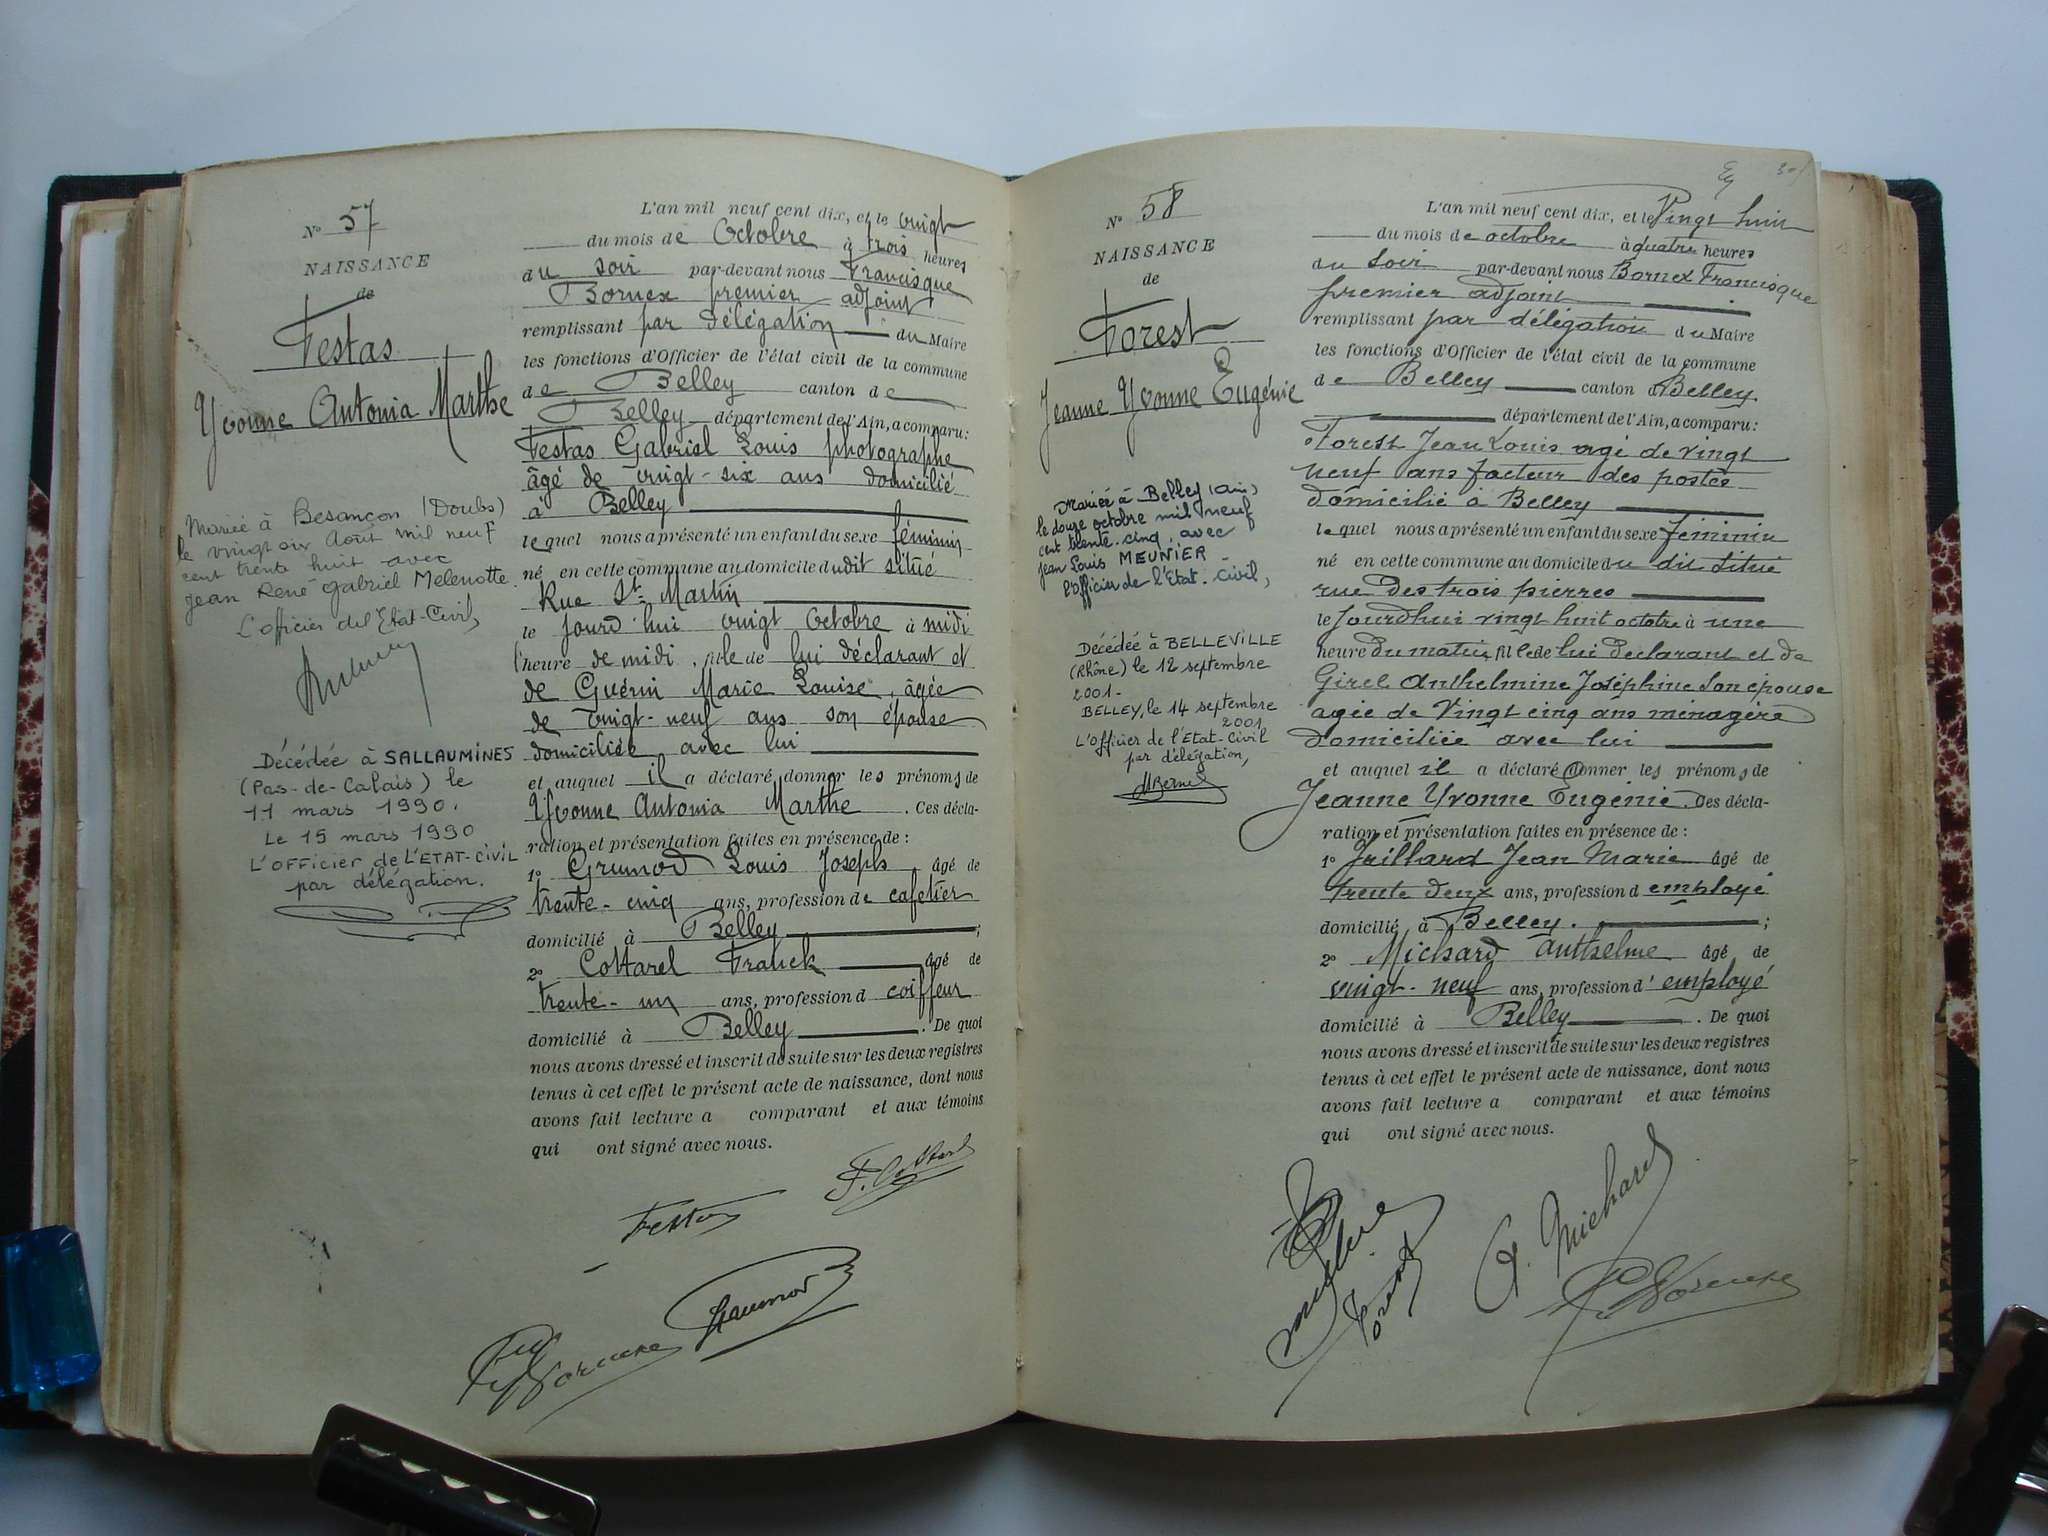 N° 57
NAISSANCE
de
Festas
Yvonne Antonia Marthe
Mariée à Besançon (Doubs)
le vingt six Août mil neuf
cent trente huit avec
Jean René Gabriel Melenotte.
L'officier de l'Etat-Civil,
Décédée à SALLAUMINES
(Pas-de-Calais) le
11 mars 1990.
Le 15 mars 1990
L'OFFICIER de L'ETAT-CIVIL
par délégation.
L'an mil neuf cent dix, et le vingt
du mois de Octobre à trois heures
du soir par-devant nous Francisque
Bornex premier adjoint
remplissant par délégation du Maire
les fonctions d'Officier de l'état civil de la commune
de Belley canton de
Belley département de l'Ain, a comparu:
Festas Gabriel Louis photographe
âgé de vingt-six ans domicilié
à Belley
lequel nous a présenté un enfant du sexe féminin
né en cette commune au domicile dudit situé
Rue St. Martin
le jourd'hui vingt Octobre à midi
l'heure de midi, fille de lui déclarant et
de Guérin Marie Louise, âgée
de vingt-neuf ans son épouse
domiciliée avec lui
et auquel il a déclaré donner les prénoms de
Yvonne Antonia Marthe. Ces décla-
ration et présentation faites en présence de:
1° Grumod Louis Joseph âgé de
trente-cinq ans, profession de cafetier
domicilié à Belley;
2° Cottarel Franck âgé de
trente-un ans, profession d coiffeur
domicilié à Belley. De quoi
nous avons dressé et inscrit de suite sur les deux registres
tenus à cet effet le présent acte de naissance, dont nous
avons fait lecture a comparant et aux témoins
qui ont signé avec nous.
F. Cottarel
Festas
Grumod
Bornex
N° 58
NAISSANCE
de
Forest
Jeanne Yvonne Eugénie
Mariée à Belley (Ain)
le douze octobre mil neuf
cent trente-cinq, avec
Jean Louis MEUNIER
l'officier de l'Etat-Civil,
Décédée à BELLEVILLE
(Rhône) le 12 septembre
2001.
BELLEY, le 14 septembre
2001
L'officier de l'Etat-Civil
par délégation,
L'an mil neuf cent dix, et le Vingt huit
du mois de octobre à quatre heures
du soir par-devant nous Bornex Francisque
premier adjoint
remplissant par délégation du Maire
les fonctions d'Officier de l'état civil de la commune
de Belley canton d Belley
département de l'Ain, a comparu:
Forest Jean Louis agé de vingt
neuf ans facteur des postes
domicilié à Belley
lequel nous a présenté un enfant du sexe féminin
né en cette commune au domicile du dit situé
rue des trois pierres
le jourdhui vingt huit octobre à une
heure du matin fille de lui declarant et de
Girel Anthelmine Joséphine son épouse
agée de vingt cinq ans ménagère
domiciliée avec lui
et auquel il a déclaré donner les prénoms de
Jeanne Yvonne Eugénie. Ces décla-
ration et présentation faites en présence de:
1° Juillard Jean Marie âgé de
trente deux ans, profession d employé
domicilié à Belley.;
2° Michard Anthelme âgé de
vingt-neuf ans, profession d'employé
domicilié à Belley. De quoi
nous avons dressé et inscrit de suite sur les deux registres
tenus à cet effet le présent acte de naissance, dont nous
avons fait lecture a comparant et aux témoins
qui ont signé avec nous.
A. Michard
Forest
Bornex